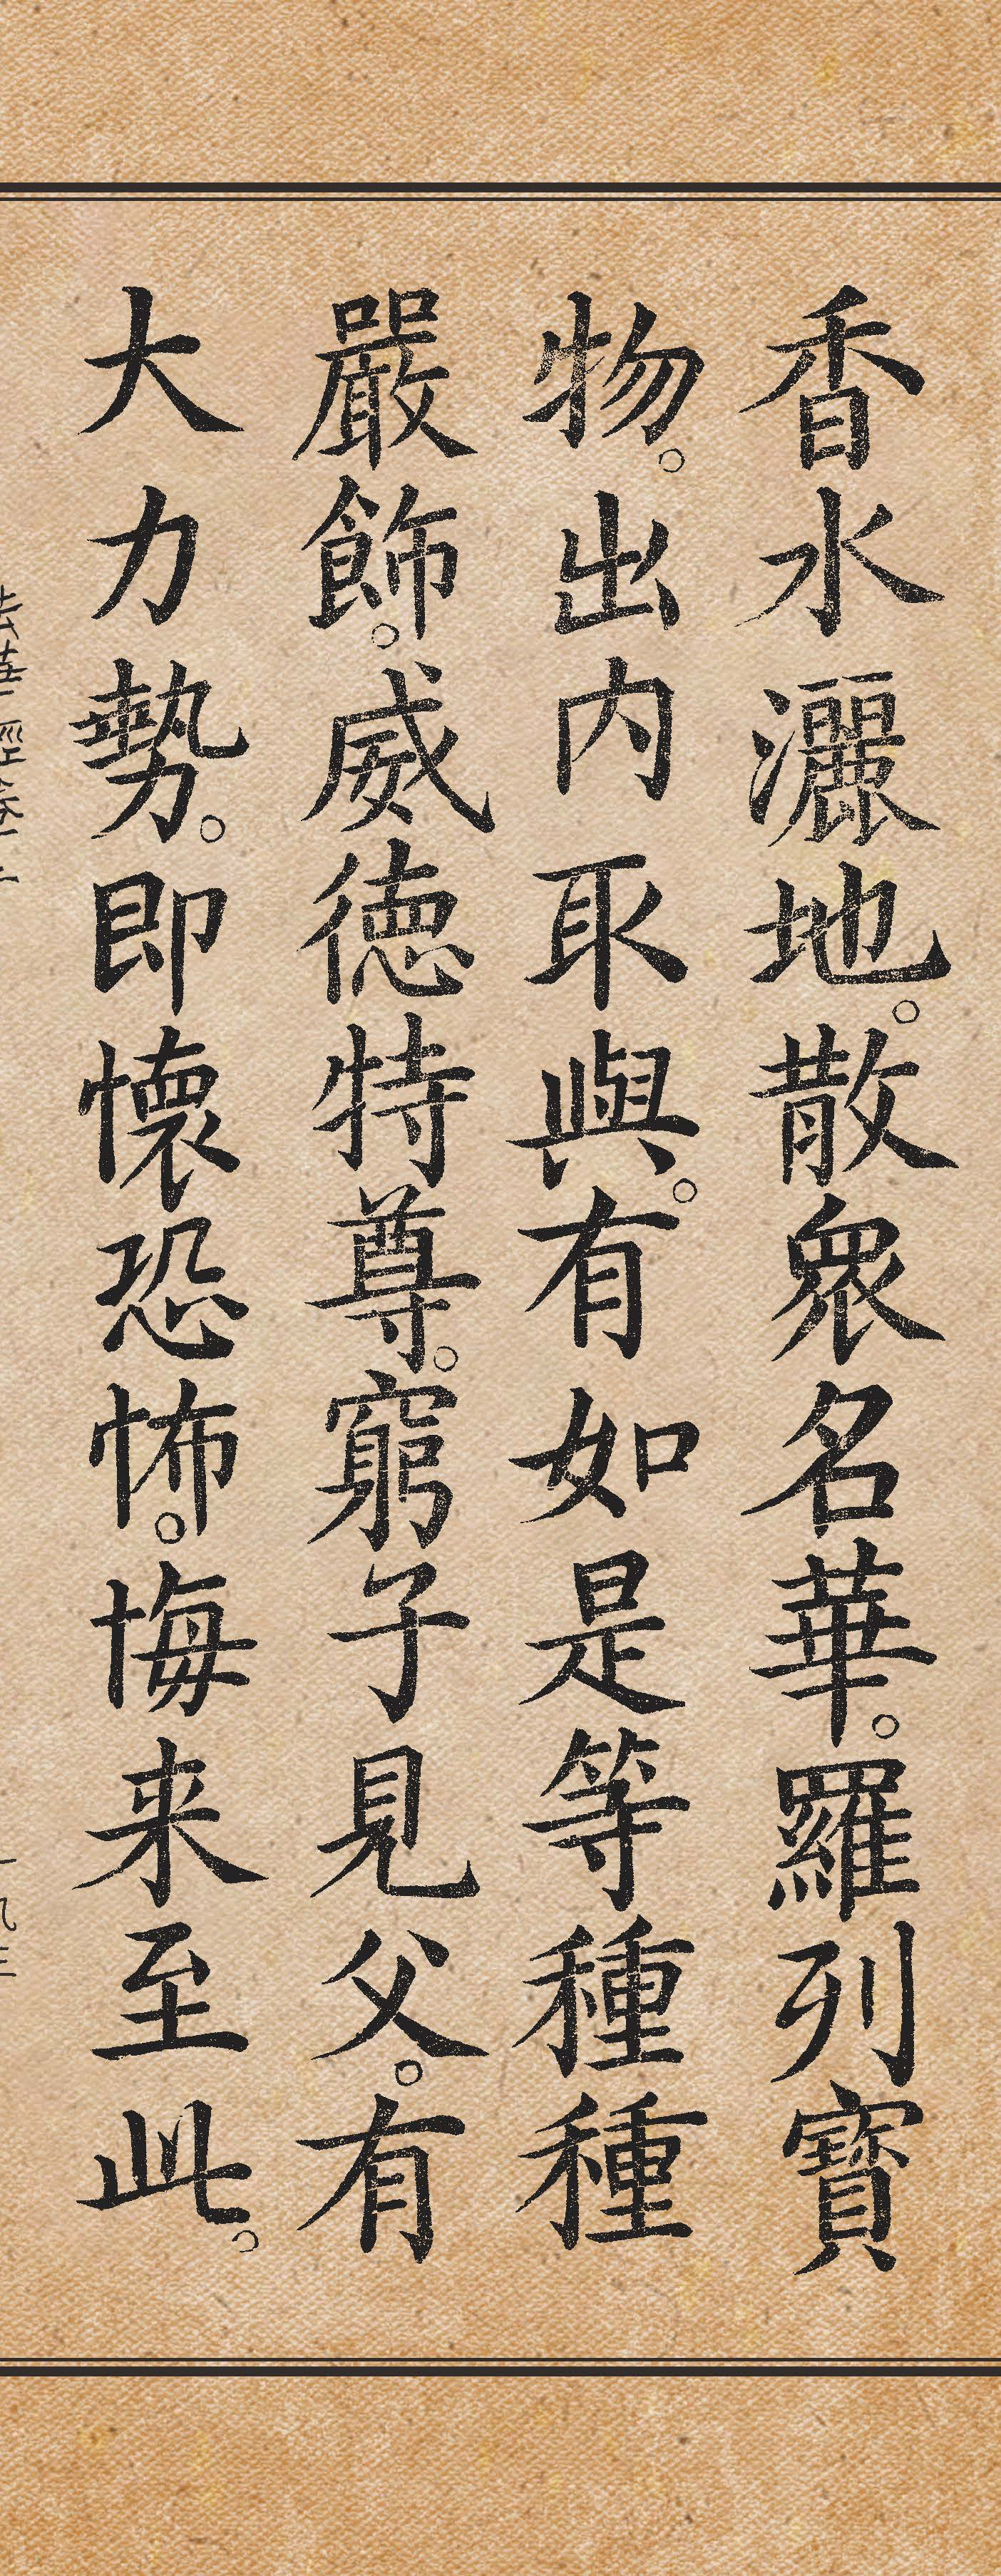 香水灑地。散衆名華。羅列寶
物。出內取與。有如是等種種
嚴飾。威德特尊。窮子見父。有
大力勢。即懷恐怖。悔来至此。